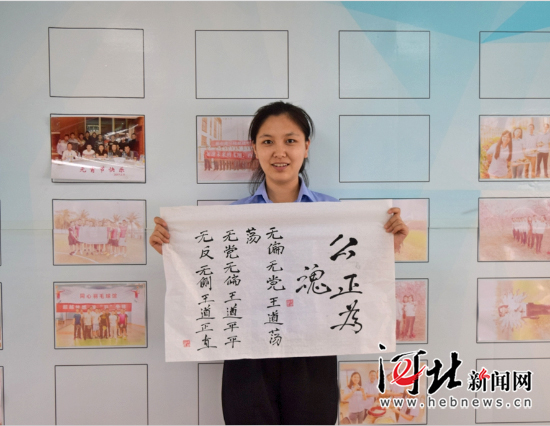 公正為
魂
无偏无党王道荡
荡
无党无偏王道平平
无反无侧王道正直
元宵节快乐
河北新闻网
www.hebnews.cn